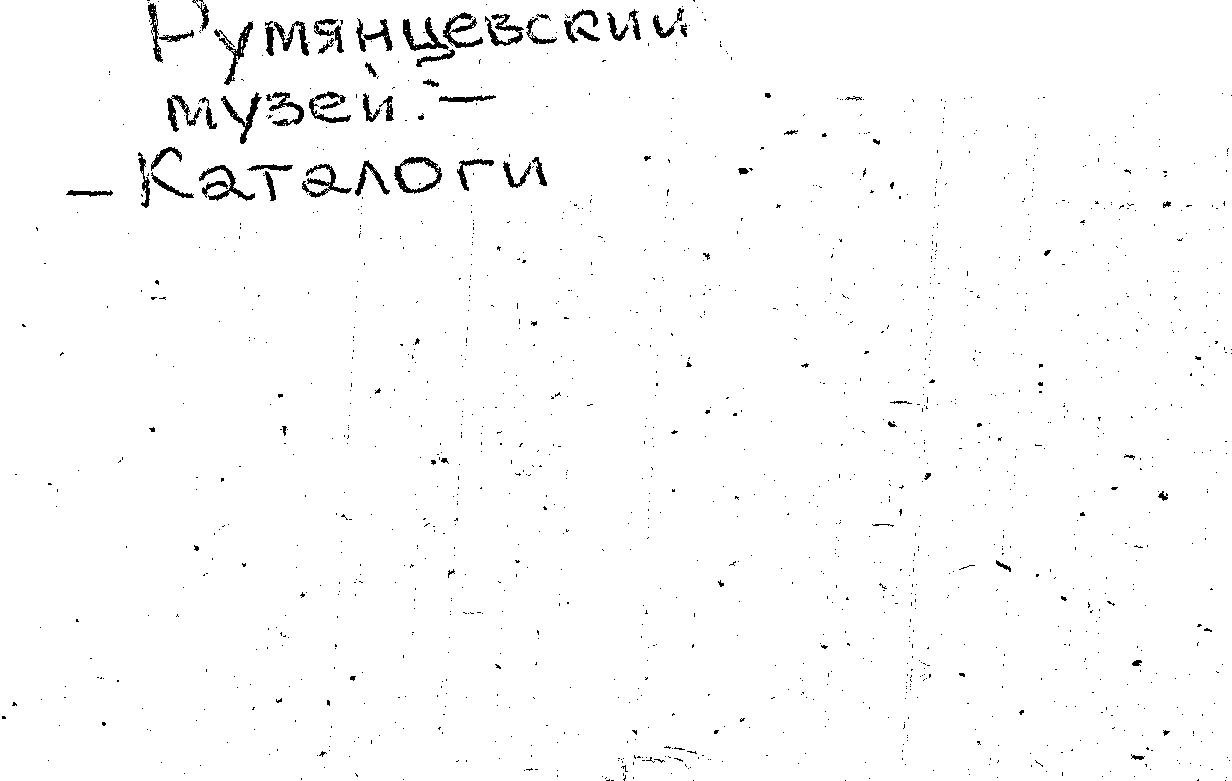 Румянцевский
музей. —
— Каталоги